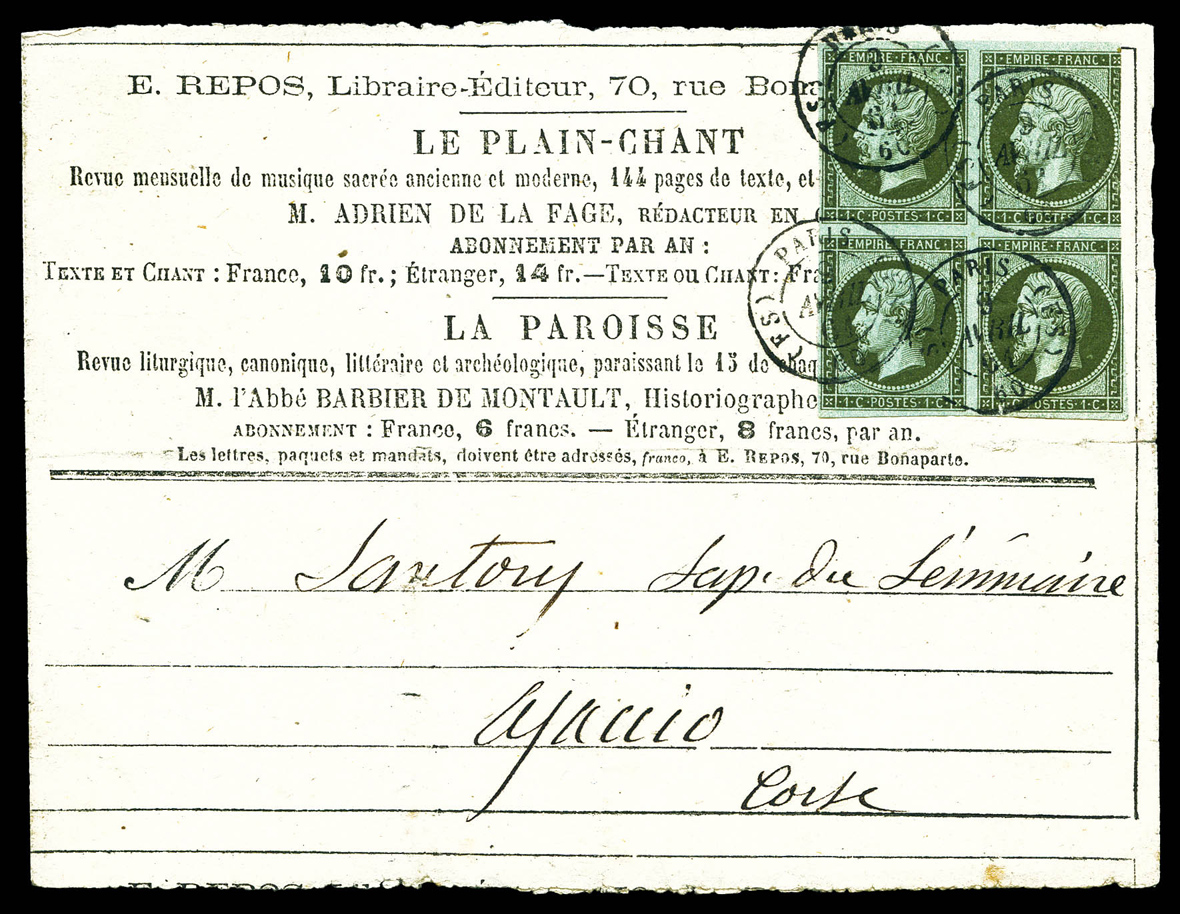 E. REPOS, Libraire-Éditeur, 70, rue Bona
LE PLAIN-CHANT
Revue mensuelle de musique sacrée ancienne et moderne, 144 pages de texte, et
M. ADRIEN DE LA FAGE, RÉDACTEUR EN
ABONNEMENT PAR AN :
TEXTE ET CHANT : France, 10 fr.; Étranger, 14 fr.—TEXTE OU CHANT: Fra
LA PAROISSE
Revue liturgique, canonique, littéraire et archéologique, paraissant le 15 de chaq
M. l'Abbé BARBIER DE MONTAULT, Historiographe
ABONNEMENT : France, 6 francs. — Étranger, 8 francs, par an.
Les lettres, paquets et mandats, doivent être adressés, franco, à E. REPOS, 70, rue Bonaparte.
EMPIRE FRANC
1·C·POSTES·1·C
EMPIRE FRANC
1·C·POSTES·1·C
EMPIRE FRANC
1·C·POSTES·1·C
EMPIRE FRANC
1·C·POSTES·1·C
PARIS
2
AVRIL
60
PARIS
AVRIL
60
PARIS
AVRIL
PARIS
AVRIL
60
M Santory Sup. du Séminaire
Ajaccio
Corse
E. REPOS